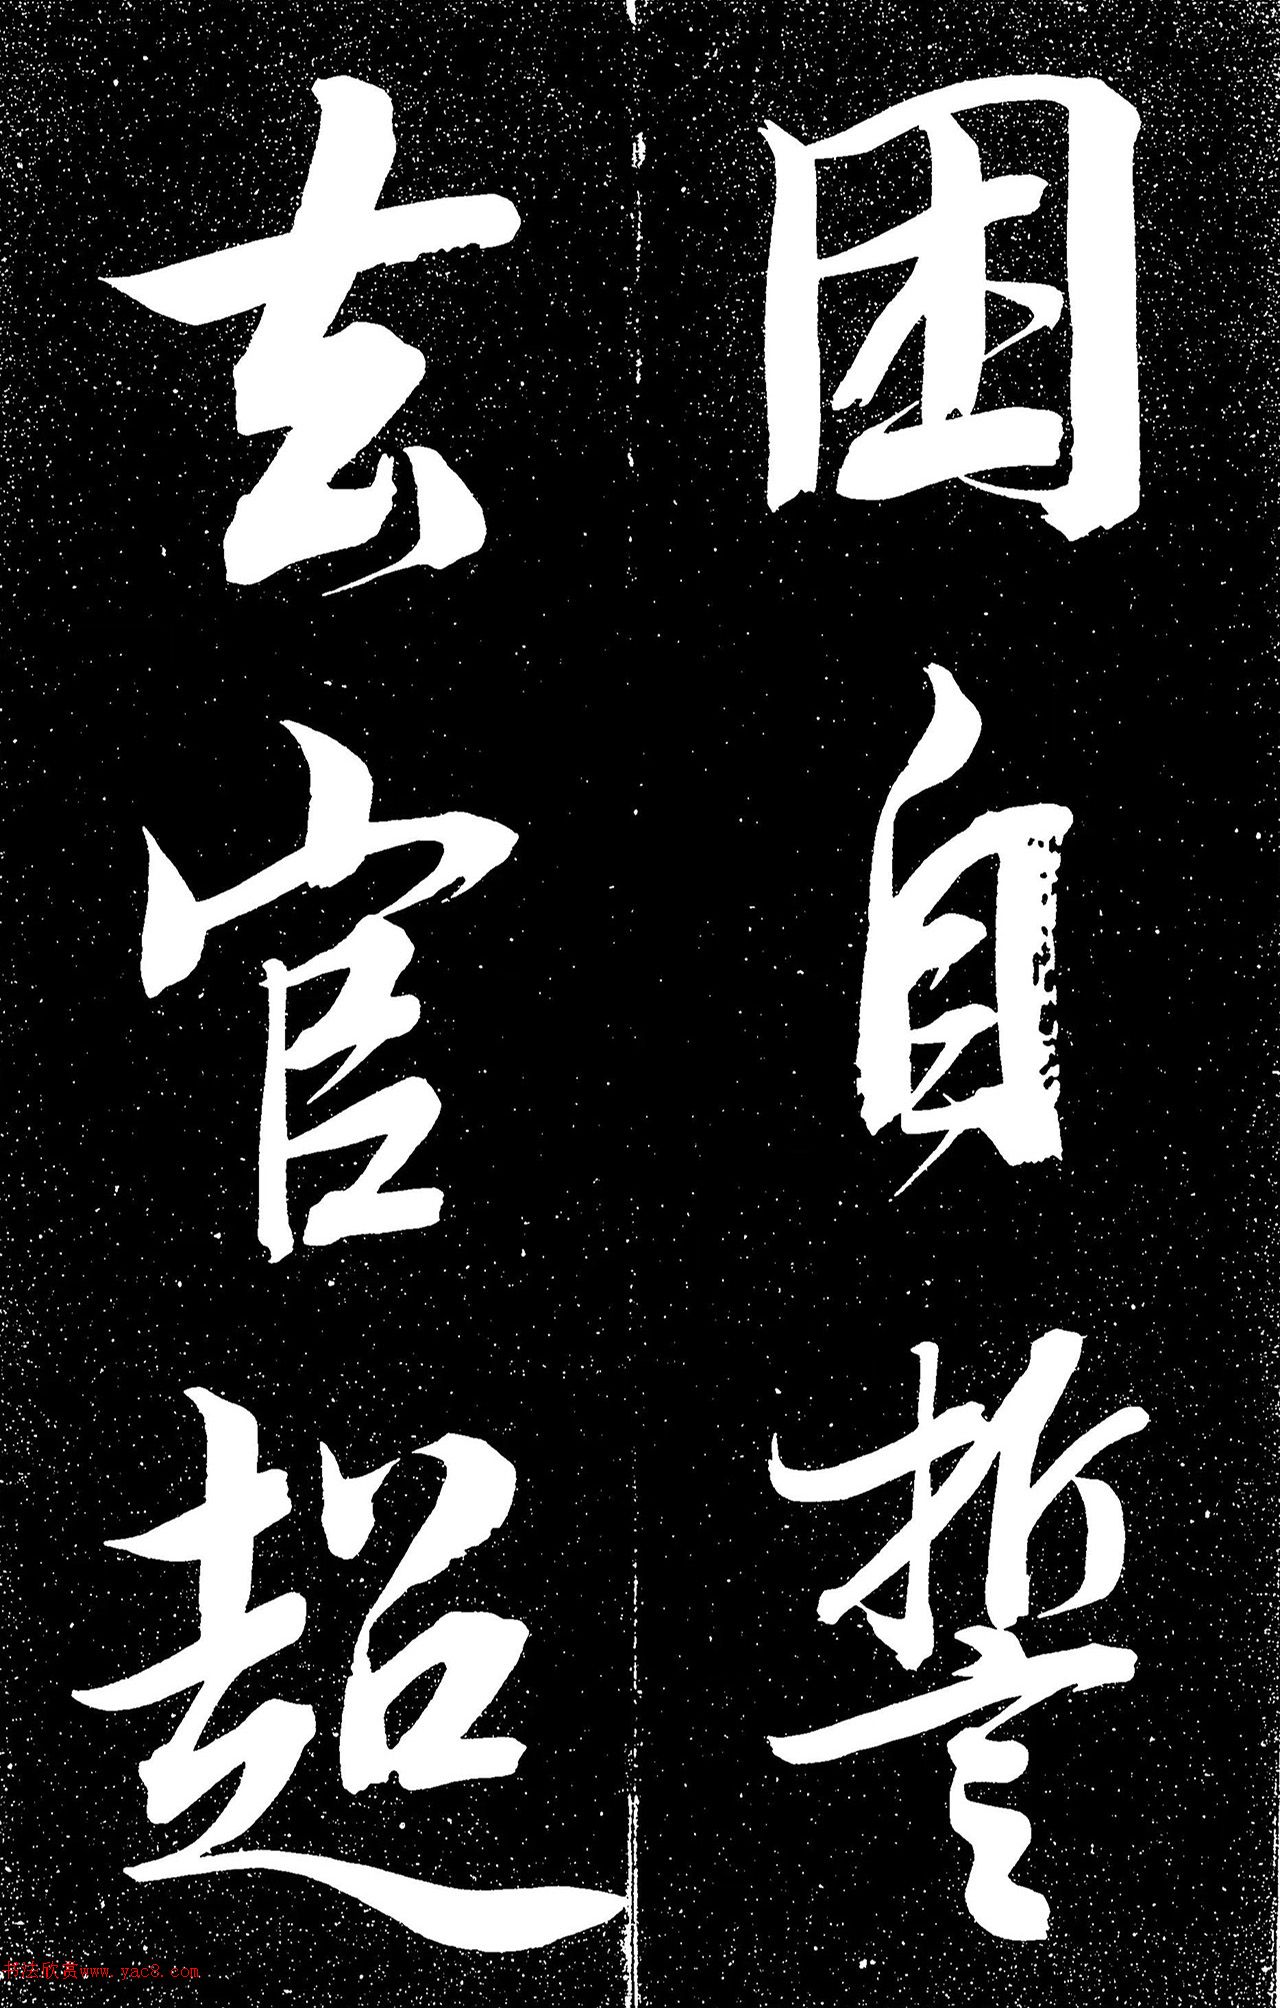 因自誓
去官超
书法欣赏www.yac8.com